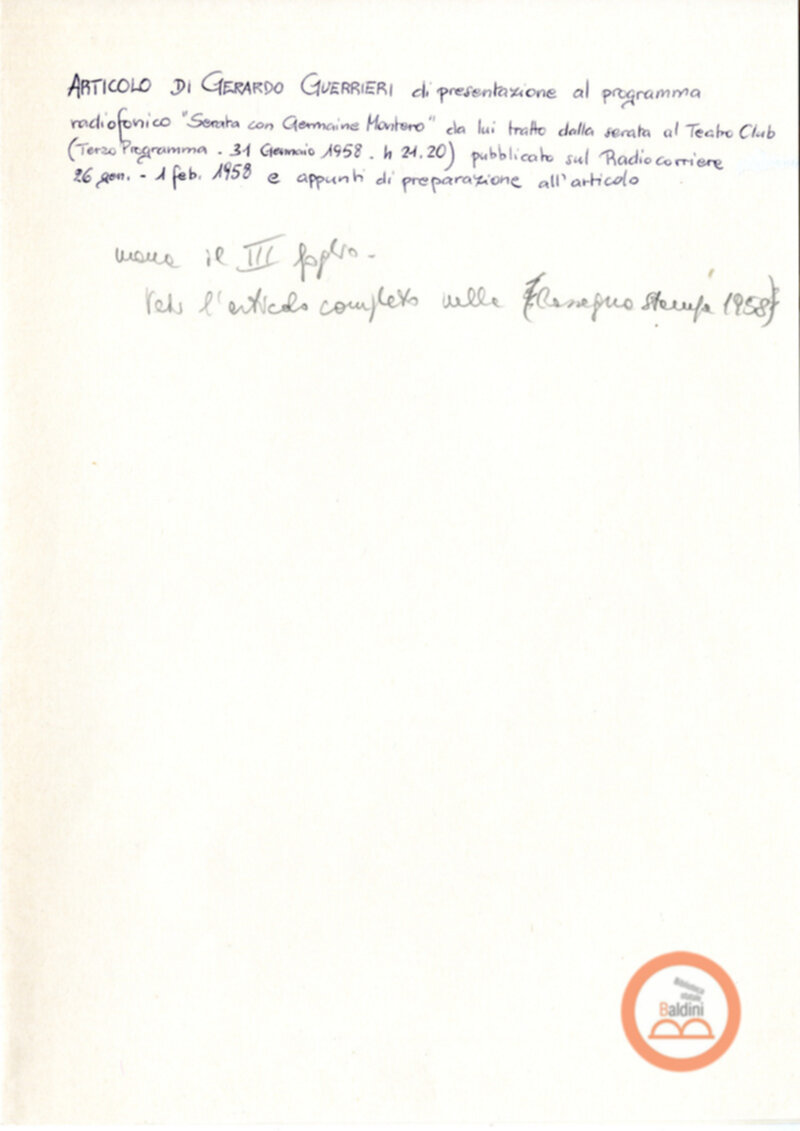 ARTICOLO DI GERARDO GUERRIERI di presentazione al programma
radiofonico "Serata con Germaine Montero" da lui tratto dalla serata al Teatro Club
(Terzo Programma - 31 Gennaio 1958 - h 21.20) pubblicato sul Radiocorriere
26 gen. - 1 feb. 1958 e appunti di preparazione all'articolo
manca il III foglio -
Vedi l'articolo completo nella (Rassegna Stampa 1958)
Biblioteca
statale
Baldini